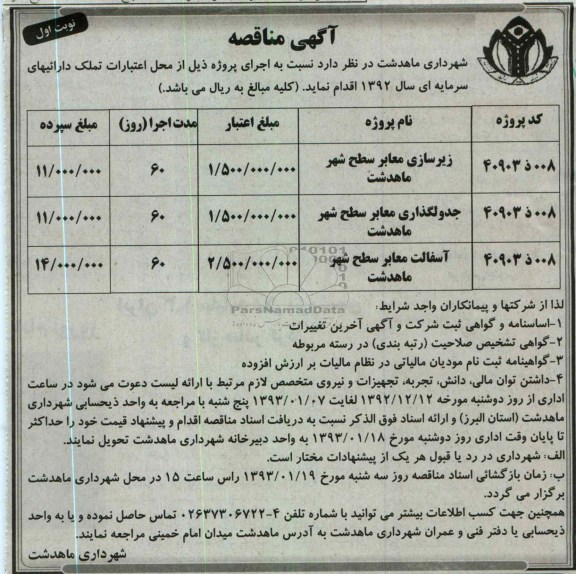 نوبت اول
آگهی مناقصه
شهرداری ماهدشت در نظر دارد نسبت به اجرای پروژه ذیل از محل اعتبارات تملک دارائیهای
سرمایه ای سال ۱۳۹۲ اقدام نماید. (کلیه مبالغ به ریال می باشد.)
کد پروژه نام پروژه مبلغ اعتبار مدت اجرا (روز) مبلغ سپرده
۴۰۹۰۳ ذ ۰۰۸ زیرسازی معابر سطح شهر ماهدشت ۱/۵۰۰/۰۰۰/۰۰۰ ۶۰ ۱۱/۰۰۰/۰۰۰
۴۰۹۰۳ ذ ۰۰۸ جدولگذاری معابر سطح شهر ماهدشت ۱/۵۰۰/۰۰۰/۰۰۰ ۶۰ ۱۱/۰۰۰/۰۰۰
۴۰۹۰۳ ذ ۰۰۸ آسفالت معابر سطح شهر ماهدشت ۲/۵۰۰/۰۰۰/۰۰۰ ۶۰ ۱۴/۰۰۰/۰۰۰
ParsNamadData
لذا از شرکتها و پیمانکاران واجد شرایط:
۱-اساسنامه و گواهی ثبت شرکت و آگهی آخرین تغییرات
۲-گواهی تشخیص صلاحیت (رتبه بندی) در رسته مربوطه
۳-گواهینامه ثبت نام مودیان مالیاتی در نظام مالیات بر ارزش افزوده
۴-داشتن توان مالی، دانش، تجربه، تجهیزات و نیروی متخصص لازم مرتبط با ارائه لیست دعوت می شود در ساعت
اداری از روز دوشنبه مورخه ۱۳۹۲/۱۲/۱۲ لغایت ۱۳۹۳/۰۱/۰۷ پنج شنبه با مراجعه به واحد ذیحسابی شهرداری
ماهدشت (استان البرز) و ارائه اسناد فوق الذکر نسبت به دریافت اسناد مناقصه اقدام و پیشنهاد قیمت خود را حداکثر
تا پایان وقت اداری روز دوشنبه مورخ ۱۳۹۳/۰۱/۱۸ به واحد دبیرخانه شهرداری ماهدشت تحویل نمایند.
الف: شهرداری در رد یا قبول هر یک از پیشنهادات مختار است.
ب: زمان بازگشائی اسناد مناقصه روز سه شنبه مورخ ۱۳۹۳/۰۱/۱۹ راس ساعت ۱۵ در محل شهرداری ماهدشت
برگزار می گردد.
همچنین جهت کسب اطلاعات بیشتر می توانید با شماره تلفن ۴-۰۲۶۳۷۳۰۶۷۲۲ تماس حاصل نموده و یا به واحد
ذیحسابی یا دفتر فنی و عمران شهرداری ماهدشت به آدرس ماهدشت میدان امام خمینی مراجعه نمایند.
شهرداری ماهدشت